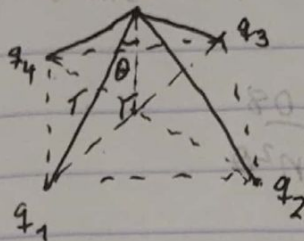 q₄
q₃
θ
r
r
q₁
q₂